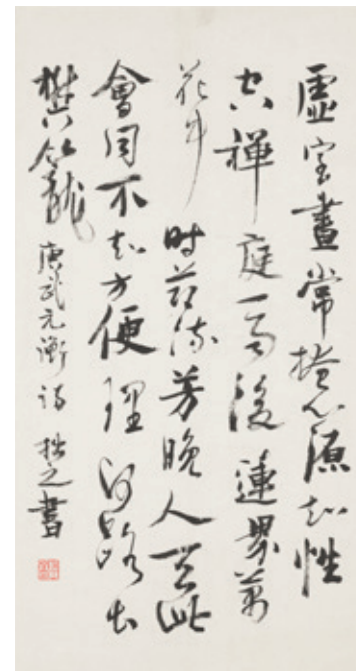 虛室晝常掩心源知性
空禪庭一雨後蓮界萬
花中时節流芳晚人天此
會同不知方便理何路出
樊籠 唐武元衡詩 拙之書